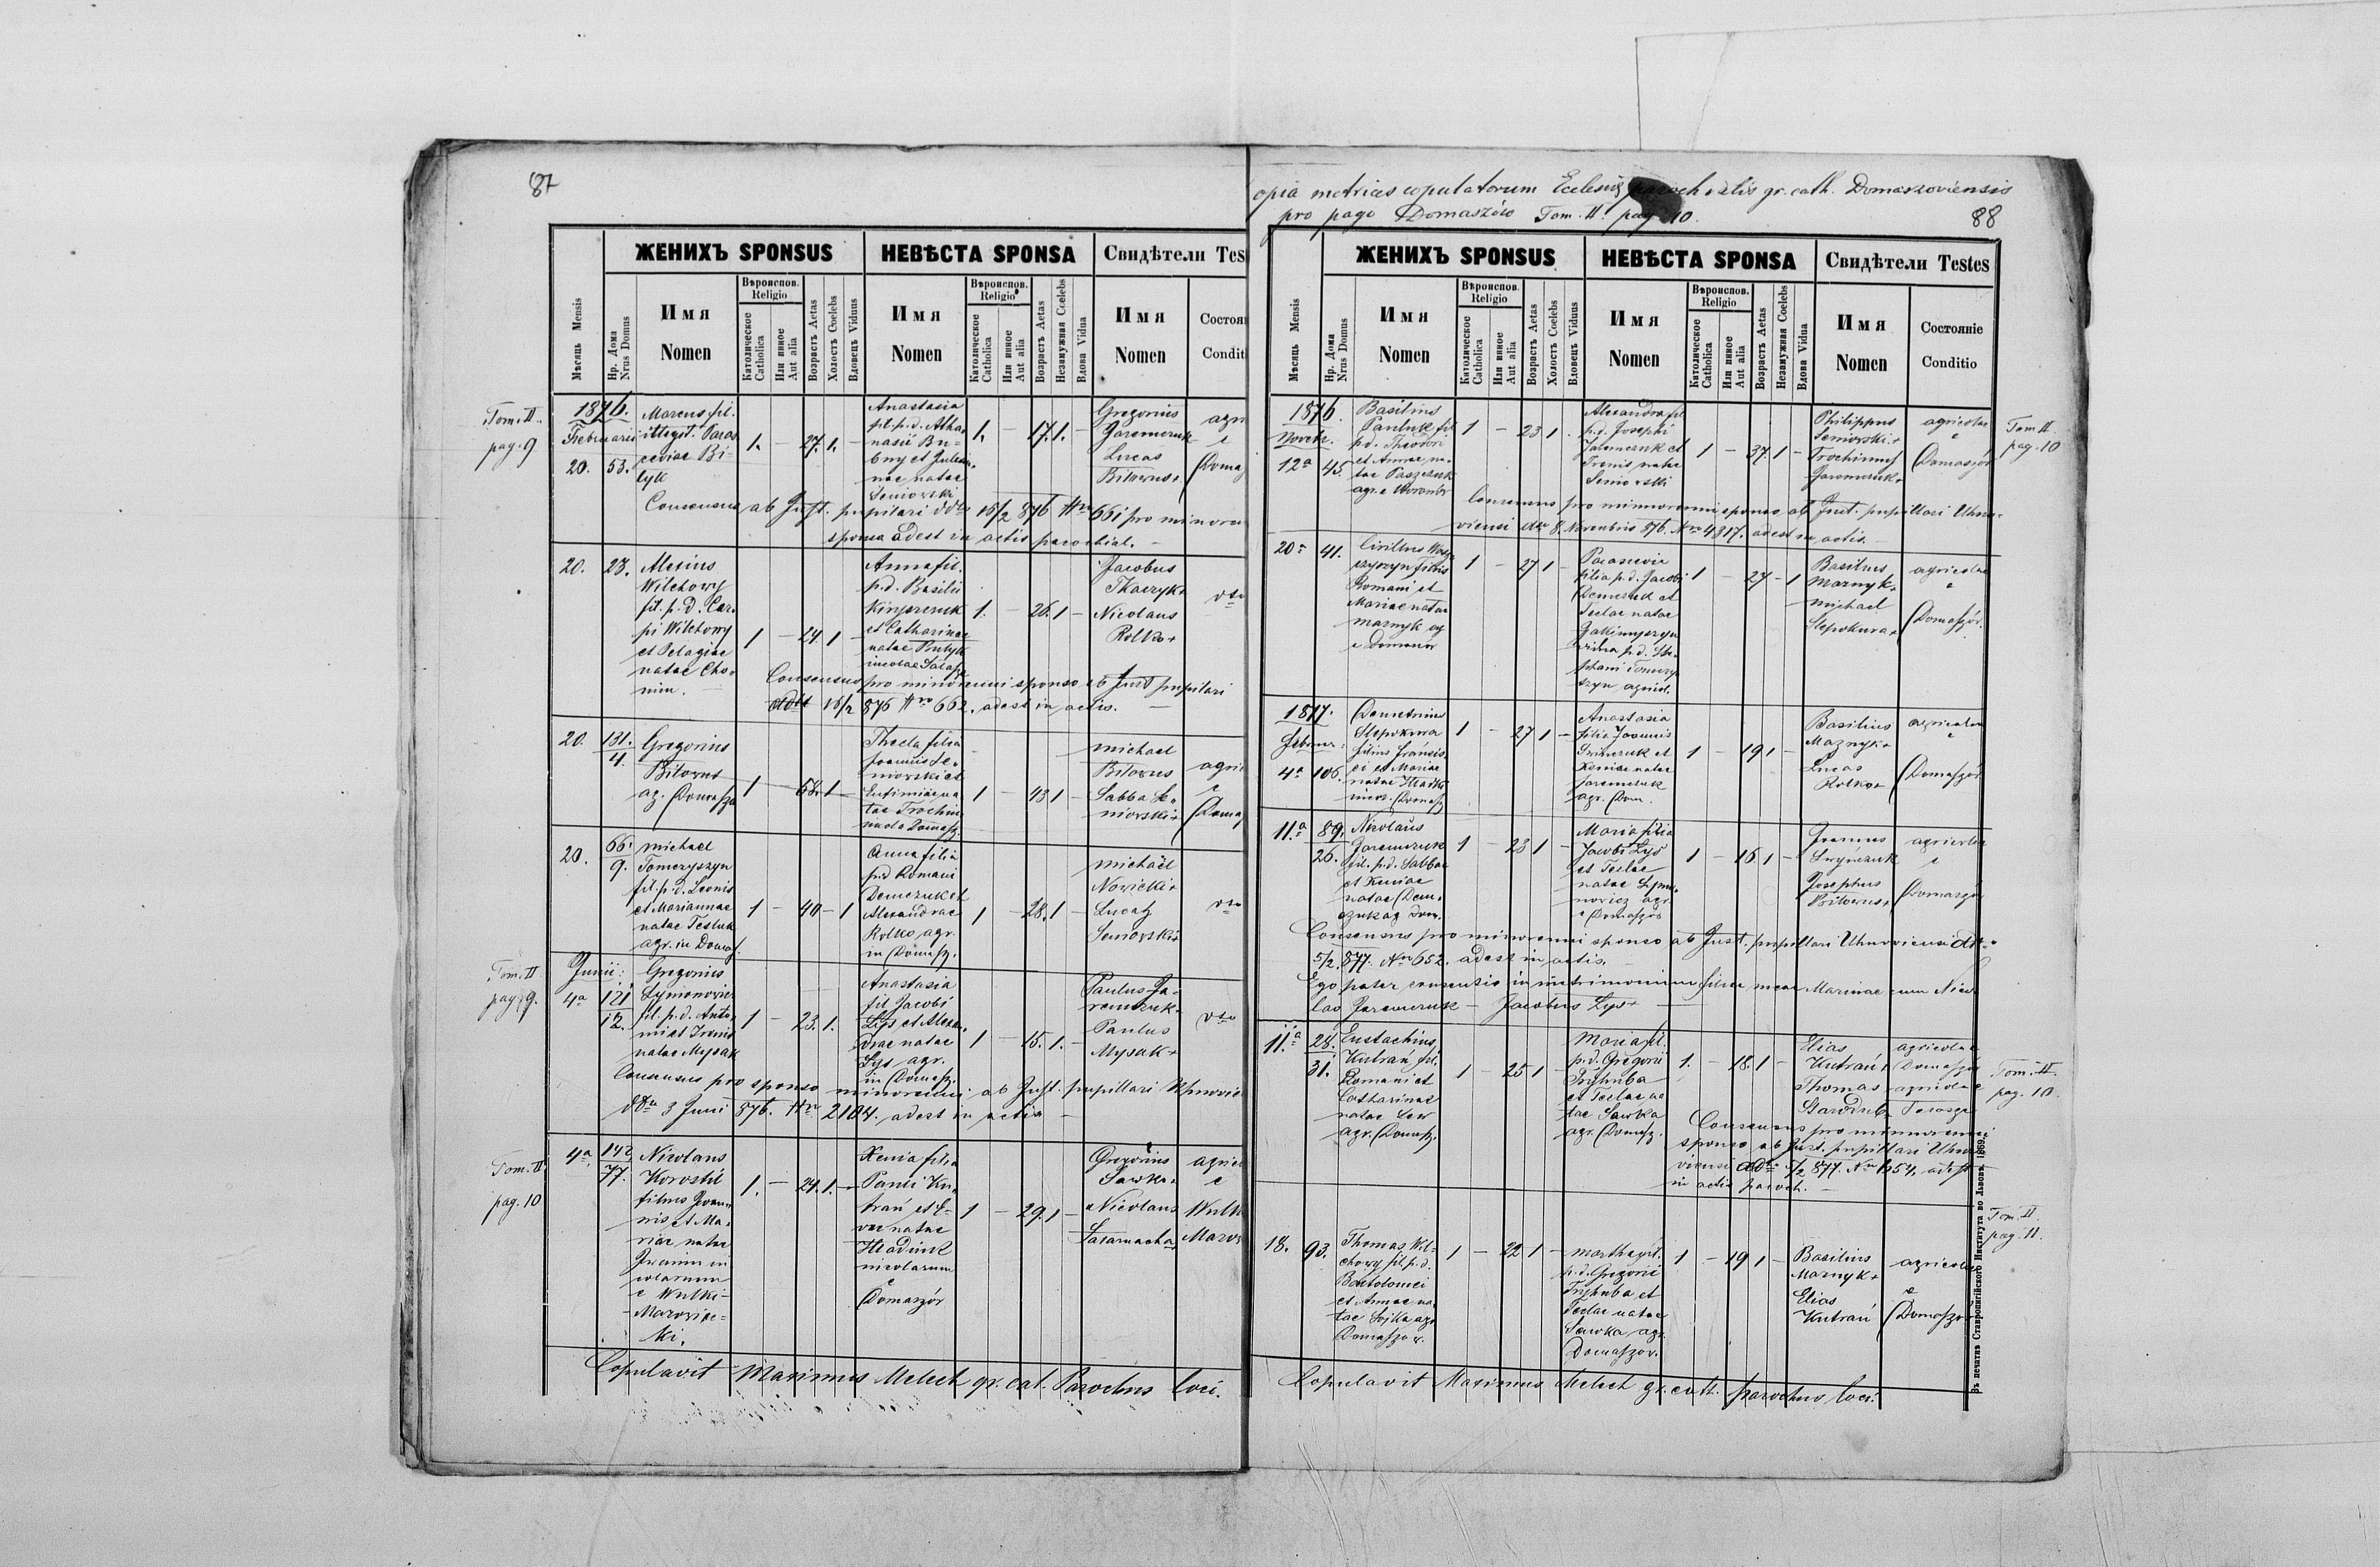 87
ЖЕНИХЪ SPONSUS
НЕВѢСТА SPONSA
Свидѣтели Tes
Мѣсяць Mensis
Нр. Дома
Nrus Domus
Имя
Nomen
Вѣроиспов.
Religio
Католическое
Catholica
Или иное
Aut alia
Возрастъ Aetas
Холостъ Coelebs
Вдовецъ Viduus
Имя
Nomen
Вѣроиспов.
Religio
Католическое
Catholica
Или иное
Aut alia
Возрастъ Aetas
Незамужняя Coelebs
Вдова Vidua
Имя
Nomen
Состоян
Condit
Tom. II.
pag. 9
1876.
Februarii
20. 53.
Marcus fil.
illegit. Paras
ceviae Bi-
lyk
1. — 27. 1. —
Anastasia
fil. p. d. Atha
nasii Bu-
bny et Julian
nae natae
Seniowski
1. — 17. 1. —
Gregorius
Jaremczuk
Lucas
Bitowus+
agri
e
Domaſ
Consensus ab Just. pupilari ddto 16/2 876 Nro 661 pro minoren
sponsa adest in actis parochial. —
20. 28.
Alexius
Wilchowy
fil. p. d. Car-
pi Wilchowy
et Pelagiae
natae Cho-
min. —
1 — 24 1 —
Anna fil.
p. d. Basilii
et Catharinae
natae
1. — 26. 1 —
Jacobus
Tkaczyk+
Nicolaus
Rolko+
dto
Consensus pro minorenni sponso ab Just pupilari
ddto 16/2 876 Nro 662. adest in actis. —
20. 131.
4.
Gregorius
Bitowus
ag. Domaſz
1 — 58. 1 —
Thecla filia
Joannis Se-
niowski et
Eufimiae na
tae Trochim
1 — 43 1 —
Michael
Bitowus
Sabba Se-
niowski+
agri
e
Domaſ
20. 66.
9.
Michael
Tomczyszyn
fil. p. d. Leonis
et Mariannae
natae Tesluk
agr. in Domaſ.
1 — 40 — 1
Anna filia
p. d. Romani
Demczuk et
Alexandrae
Rolko agr.
in Domaſz.
1 — 28. 1 —
Michaël
Nowicki+
Lucas
Seniowski+
dto
Tom. II
pag. 9.
Junii:
4a 121
12.
Gregorius
Szymonowicz
fil. p. d. Anto-
ni et Irenis
natae Mysak
1 — 23. 1. —
Anastasia
fil. Jacobi
Lys et Alexan-
drae natae
Lys agr.
in Domaſz.
1 — 15. 1. —
Paulus Ja-
remczuk.
Paulus
Mysak+
dto
Consensus pro sponso minorenni ab Just. pupillari Uhnovien
ddto 3 Junii 876. Nro 2104. adest in actis —
Tom. II
pag. 10
4a 142
77.
Nicolaus
Korostil
filius Joan
nis et Ma-
riae natae
in
colarum
e Wulki-
Mazowiec-
ki.
1. — 24. 1. —
Xenia filia
Pauli Ku-
trań et E-
vae natae
Hladiuk
incolarum
e
Domaszów
1 — 29. 1 —
Gregorius
Sawka+
Nicolaus
agric
e
Wulk
Mazow
Copulavit Maximus Melech gr. cat. Parochus loci.
opia metrices copulatorum Eclesiae parochialis gr. cath. Domaszoviensis
pro pago Domaszów Tom. II. pag. 10.
88
ЖЕНИХЪ SPONSUS
НЕВѢСТА SPONSA
Свидѣтели Testes
Мѣсяць Mensis
Нр. Дома
Nrus Domus
Имя
Nomen
Вѣроиспов.
Religio
Католическое
Catholica
Или иное
Aut alia
Возрастъ Aetas
Холостъ Coelebs
Вдовецъ Viduus
Имя
Nomen
Вѣроиспов.
Religio
Католическое
Catholica
Или иное
Aut alia
Возрастъ Aetas
Незамужняя Coelebs
Вдова Vidua
Имя
Nomen
Состоянiе
Conditio
1876
Novemb.
12a 45.
Basilius
Pauluk fil
p. d. Theodori
et Annae na-
tae Paszczuk
agr. e
1 — 23 1.
Alexandra fil
p. d. Josephi
Jaremczuk et
Irenis natae
Seniowski
1 — 37. 1 —
Philippus
Seniowski+
Trochimus
Jaremczuk+
agricolae
e
Domaszów
Tom II.
pag. 10
Consensus pro minorenni sponso ab Just. pupillari Uhno-
viensi dto 8. Novembris 876. Nro 4317. adest in actis. —
20a 41.
Cirillus
filius
Romani et
Mariae natae
Maznyk ag
e Domaszów
1 — 27 1 —
Parascevia
filia p. d. Jacobi
Demczuk et
Teclae natae
vidua p. d. Ste-
phani Tomczy-
szyn agricol.
1 — 27 — 1
Basilius
Maznyk+
Michael
Slepokura+
agricolae
e
Domaſzów.
1877.
Februar:
4a 106.
Demetrius
Slepokura
filius Francis-
ci et Mariae
natae
incol. Domaſz
1 — 27 1 —
Anastasia
filia Joannis
et
Xeniae natae
Jaremczuk
agr. Dom.
1 — 19 1 —
Basilius
Maznyk+
Lucas
Rolko+
agricolae
e
Domaſzów
11.a 89.
26.
Nicolaus
Jaremczuk
fil. p. d. Sabbae
et Xeniae
natae Dem-
czuk ag. Dom.
1 — 23 1 —
Maria filia
Jacobi Lys
et Teclae
natae Szymo-
nowicz agr.
e Domaſzów
1 — 16. 1 —
Joannes
Josephus
Bitowus+
agricolae
e
Domaszów
Consensus pro minorenni sponso ab Just. pupillari Uhnoviensi ddto
5/2 877. Nro 652. adest in actis. —
Ego pater consensio in matrimonium filiae meae Marinae cum Nico-
lao Jaremczuk — Jacobus Lys+ —
11.a 28.
31.
Eustachius
Kutrań fil.
Romani et
Catharinae
natae Lew
agr. Domaſz.
1 — 25 1 —
Maria fil.
p. d. Gregorii
Pryhuba
et Teclae na
tae Sawka
agr. Domaſz.
1. — 18. 1 —
Elias
Kutrań+
Thomas
Starodub
agricolae
Domaſzów
agricolae
Tom. II.
pag. 10.
Consensus pro minorenni
sponso ab Just. pupillari Uhno
viensi ddto 5/2 877. Nro 654, adest
in actis paroch. —
Tom. II.
pag. 11.
18. 93.
Thomas Wil-
chowy fil. p. d.
Bartolomei
et Annae na-
tae Sojka agr
Domaſzow.
1 — 22 1 —
Martha fil.
p. d. Gregorii
Pryhuba et
Teclae natae
Sawka agr.
Domaſzow.
1 — 19 1 —
Basilius
Maznyk+
Elias
Kutrań
agricolae
e
Domaſzów
Copulavit Maximus Melech gr. cath. parochus loci.
Въ печатнѣ Ставропигiйского Института во Львовѣ. 1869.